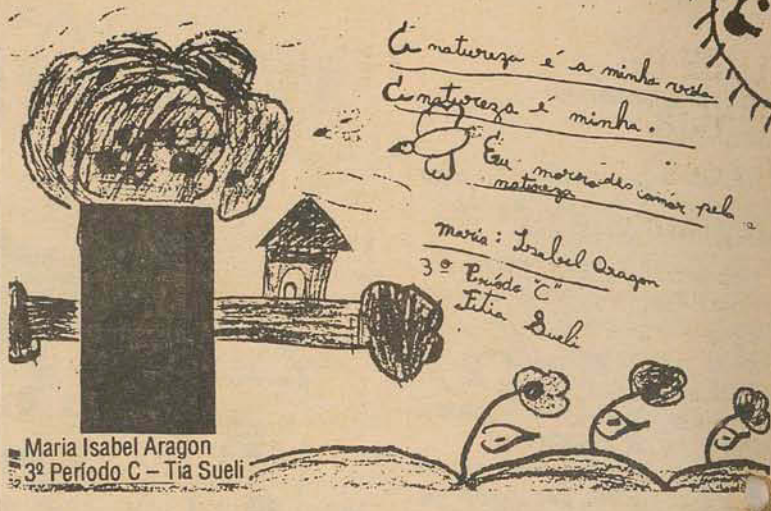 A natureza é a minha vida
A natureza é minha.
Eu morro de amor pela
natureza
Maria: Isabel Aragon
3º Período "C"
Titia Sueli
Maria Isabel Aragon
3º Período C – Tia Sueli